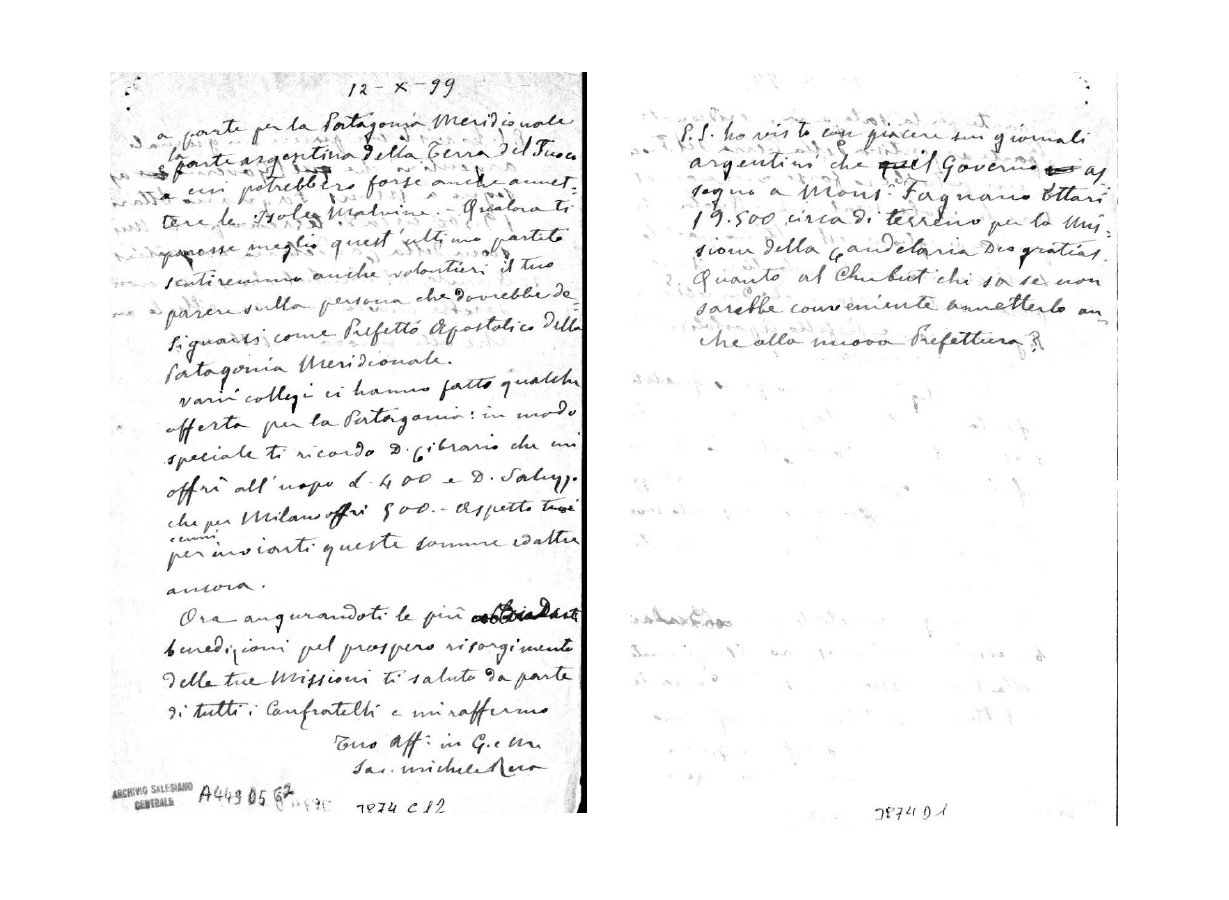 12 - X - 99
a parte per la Patagonia Meridionale
la parte argentina della Terra del Fuoco
a cui potrebbero forse anche annet-
tere le Isole Malvine. Qualora ti
paresse meglio quest'ultimo partito
sentiremmo anche volontieri il tuo
parere sulla persona che dovrebbe de-
signarsi come Prefetto Apostolico della
Patagonia Meridionale.
varii collegi ci hanno fatto qualche
offerta per la Patagonia: in modo
speciale ti ricordo D. Cibrario che mi
offrì all'uopo £. 400 e D. Saluzzo
che per Milano offrì 500. - Aspetto tuoi
cenni
per inviarti queste somme ed altre
ancora.
Ora augurandoti le più abbondanti
benedizioni pel prospero risorgimento
delle tue Missioni ti saluto da parte
di tutti i Confratelli e mi raffermo
Tuo Aff: in G. e M.
Sac. Michele Rua
ARCHIVIO SALESIANO
CENTRALE
A449 05 62
3874 C 12
P.S. ho visto con piacere sui giornali
argentini che il Governo as
segno a Mons. Fagnano Ettari
19.500 circa di terreno per la Mis-
sione della Candelaria Deo gratias.
Quanto al Chubut chi sa se non
sarebbe conveniente annetterlo an-
che alla nuova Prefettura?
3874 D 1